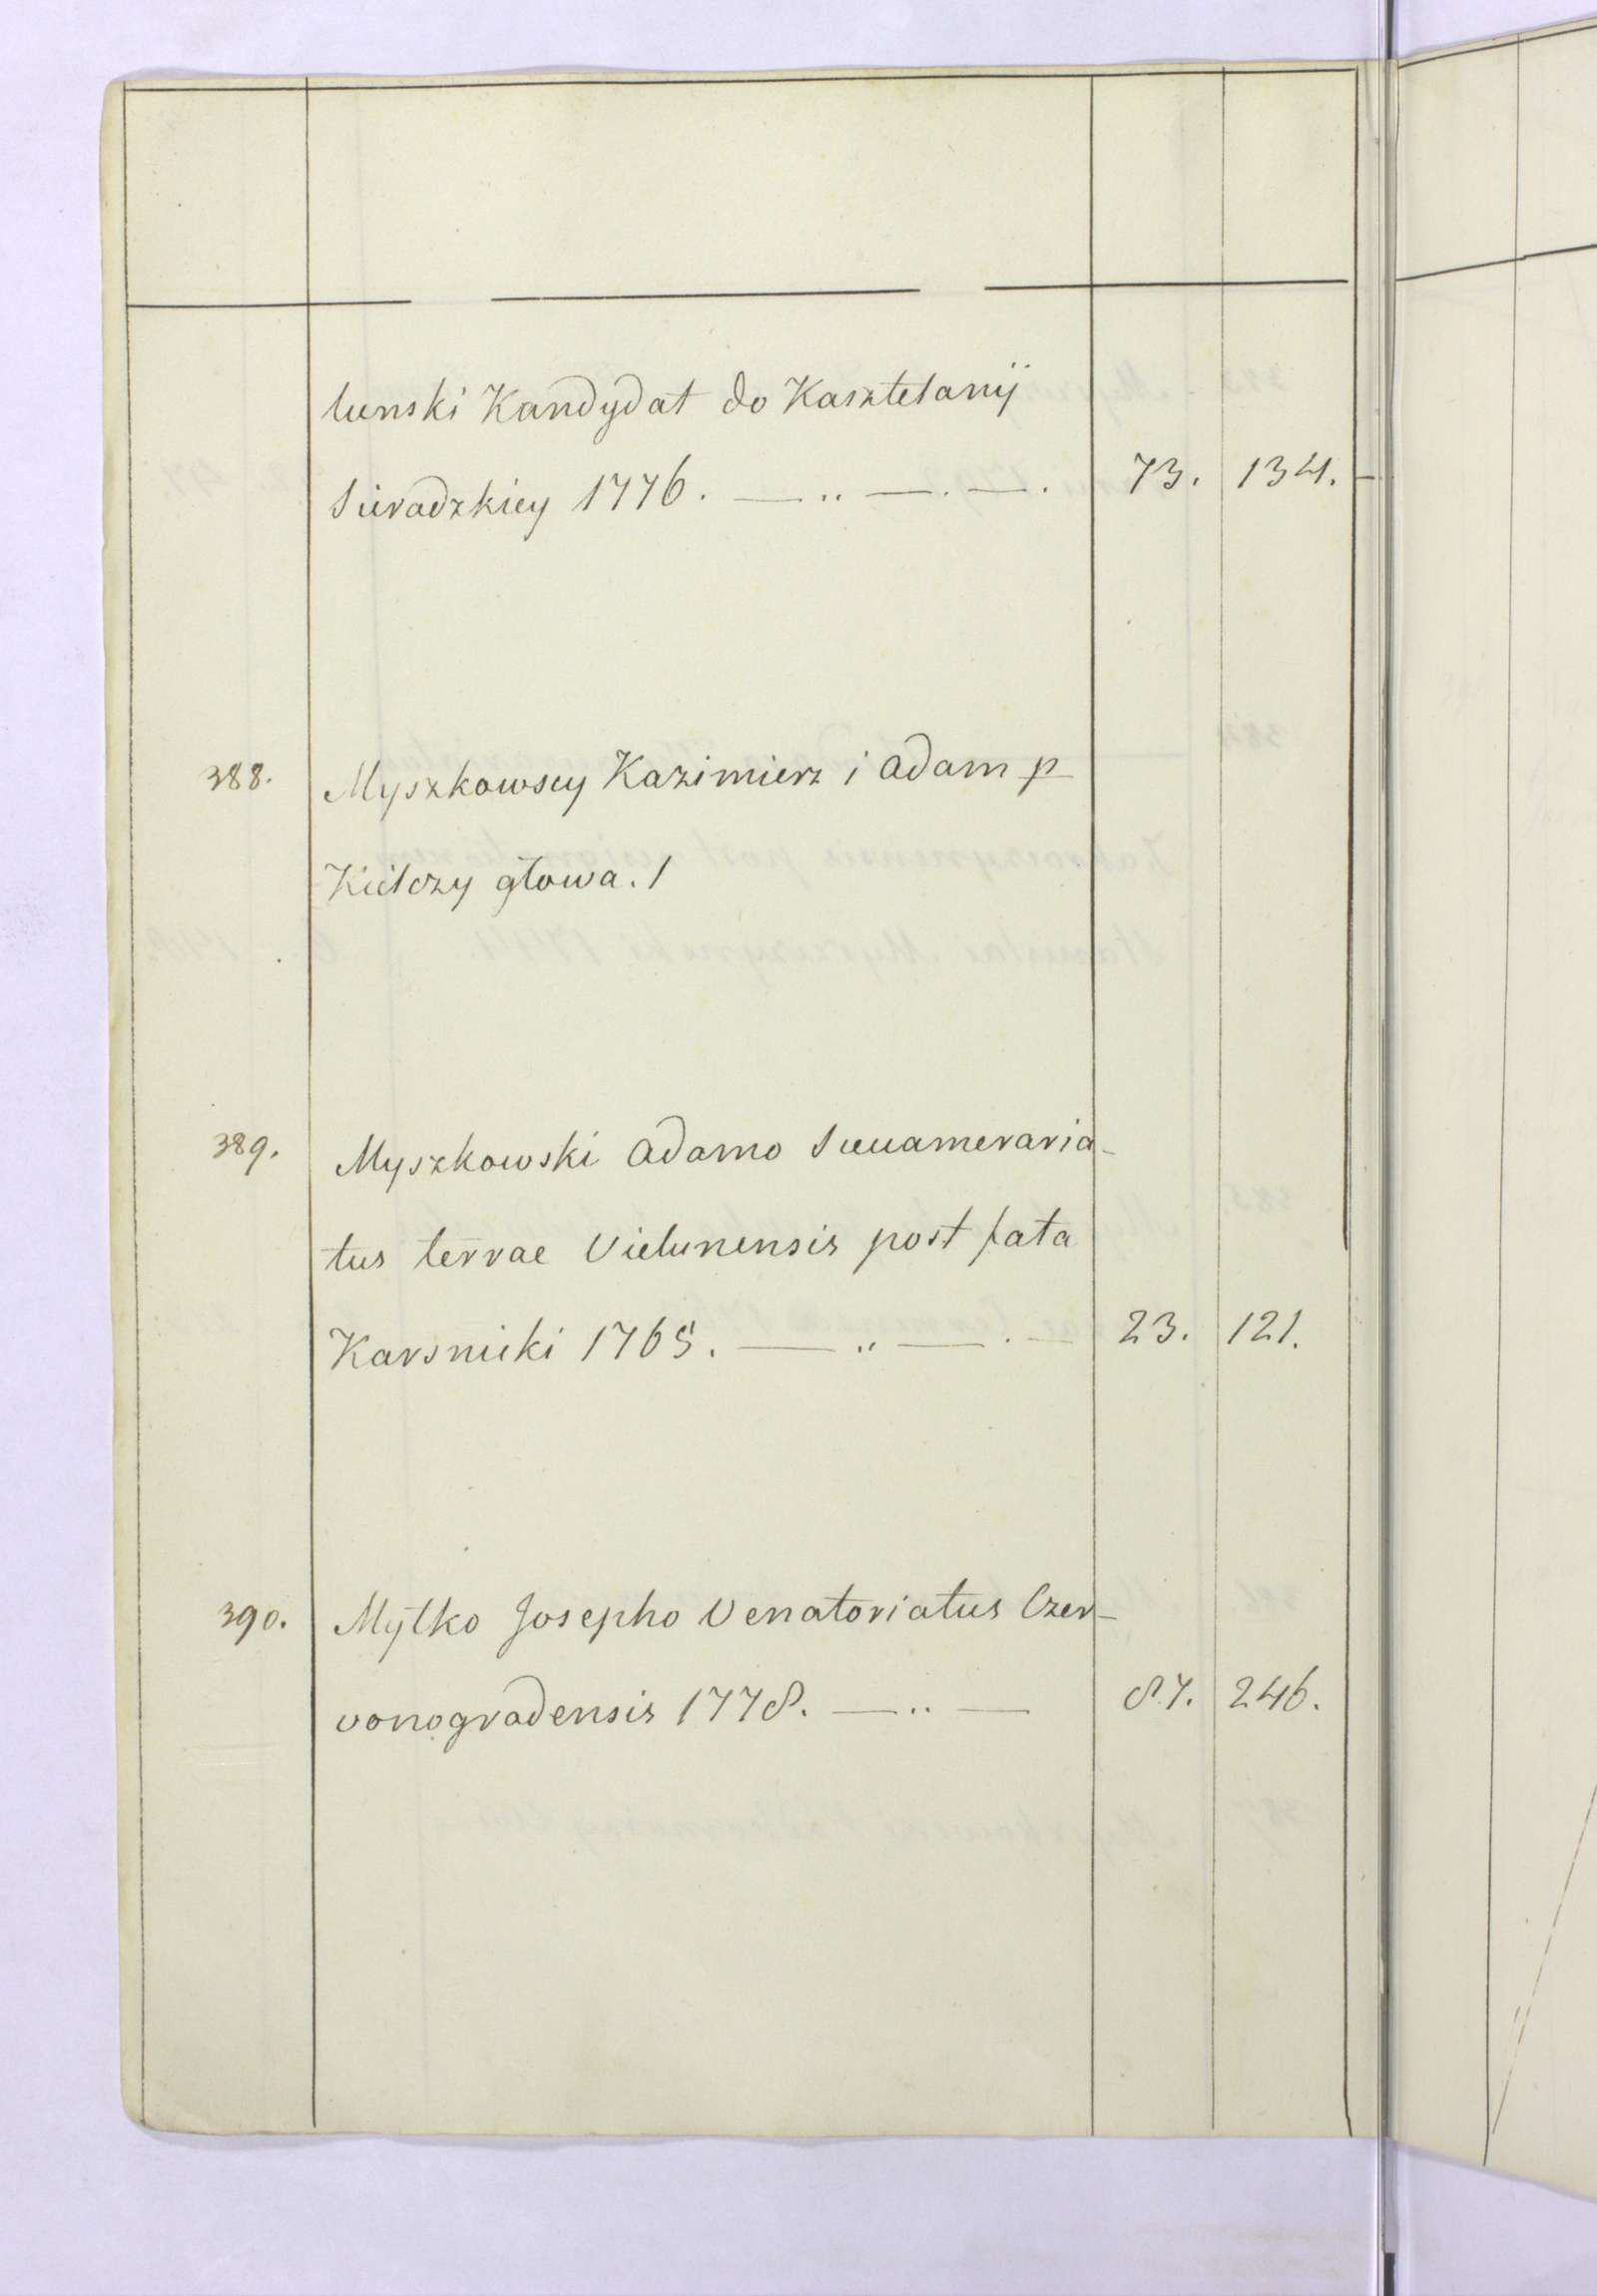 lunski Kandydat do Kasztelanij
Sieradzkiey 1776. — .. — . — . 73. 134.
388. Myszkowscy Kazimierz i Adam p
Kiełczy głowa. /
389. Myszkowski Adamo Succameraria-
tus terrae Vielunensis post fata
Karsnicki 1765. — .. — . — 23. 121.
390. Mytko Josepho Venatoriatus Czer-
vonogradensis 1778. — .. — 87. 246.